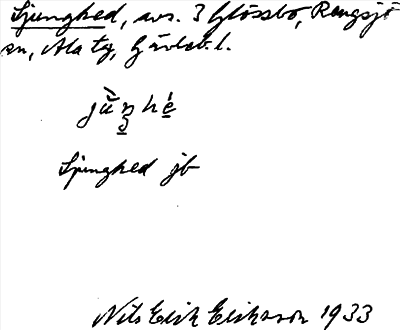 Ljunghed, avs. 3 Glössbo, Rengsjö
sn, Ala tg, Gävleb. l.
jùŋhé
Ljunghed jb
Nils Erik Eriksson 1933